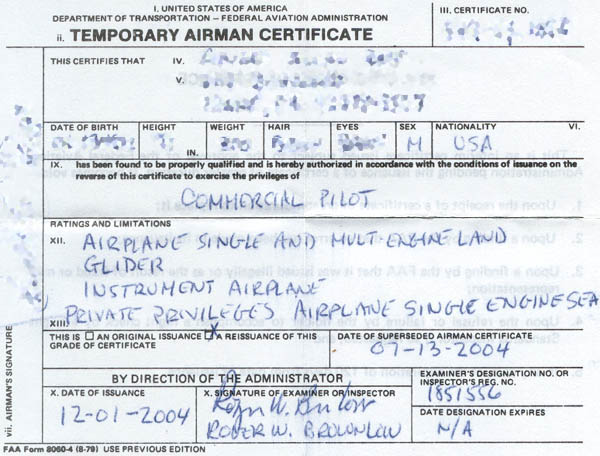 I. UNITED STATES OF AMERICA
DEPARTMENT OF TRANSPORTATION – FEDERAL AVIATION ADMINISTRATION
II. TEMPORARY AIRMAN CERTIFICATE
III. CERTIFICATE NO.
THIS CERTIFIES THAT IV.
V.
DATE OF BIRTH HEIGHT WEIGHT HAIR EYES SEX NATIONALITY VI.
IN. M USA
IX. has been found to be properly qualified and is hereby authorized in accordance with the conditions of issuance on the
reverse of this certificate to exercise the privileges of
COMMERCIAL PILOT
RATINGS AND LIMITATIONS
XII. AIRPLANE SINGLE AND MULTI-ENGINE LAND
GLIDER
INSTRUMENT AIRPLANE
PRIVATE PRIVILEGES AIRPLANE SINGLE ENGINE SEA
XIII.
THIS IS AN ORIGINAL ISSUANCE X A REISSUANCE OF THIS
GRADE OF CERTIFICATE
DATE OF SUPERSEDED AIRMAN CERTIFICATE
07-13-2004
BY DIRECTION OF THE ADMINISTRATOR
EXAMINER'S DESIGNATION NO. OR
INSPECTOR'S REG. NO.
1851556
X. DATE OF ISSUANCE
12-01-2004
X. SIGNATURE OF EXAMINER OR INSPECTOR
Roger W. Brownlow
ROGER W. BROWNLOW
DATE DESIGNATION EXPIRES
N/A
vii. AIRMAN'S SIGNATURE
FAA Form 8060-4 (8-79) USE PREVIOUS EDITION